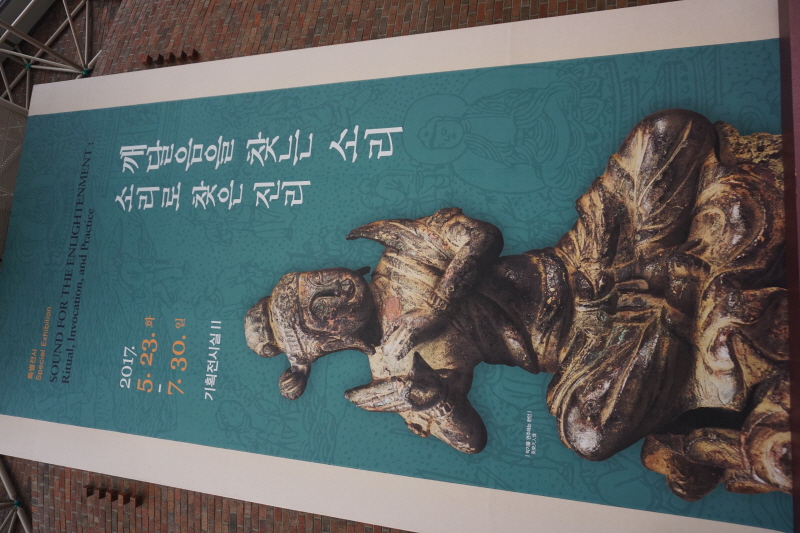 특별전시
Special Exhibition
SOUND FOR THE ENLIGHTENMENT :
Ritual, Invocation, and Practice
깨달음을 찾는 소리
소리로 찾은 진리
2017.
5. 23. 화
–
7. 30. 일
기획전시실 II